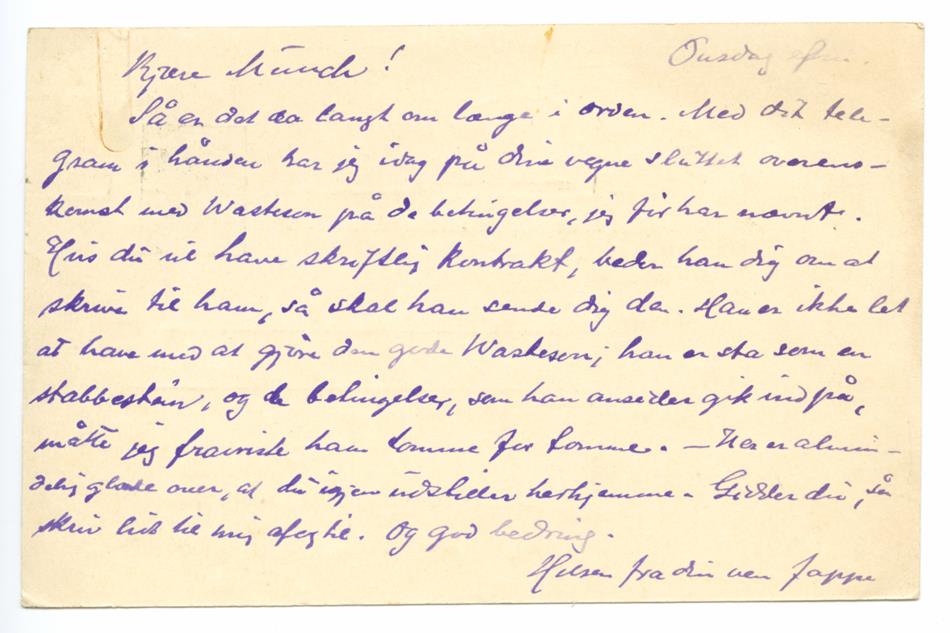 Onsdag efm.
Kjære Munch!
Så er det da langt om længe i orden. Med dit tele-
gram i hånden har jeg idag på dine vegne sluttet overens-
komst med Wasteson på de betingelser, jeg før har nævnt.
Hvis du vil have skriftlig kontrakt, beder han dig om at
skrive til ham, så skal han sende dig den. Han er ikke let
at have med at gjöre den gode Wasteson; han er sta som en
stabbestein, og de betingelser, som han omsider gik ind på,
måtte jeg fravriste ham tomme for tomme. – Her er almin-
delig glæde over, at du igjen udstiller herhjemme. Gidder du, så
skriv lidt til mig af og til. Og god bedring.
Hilsen fra din ven Jappe